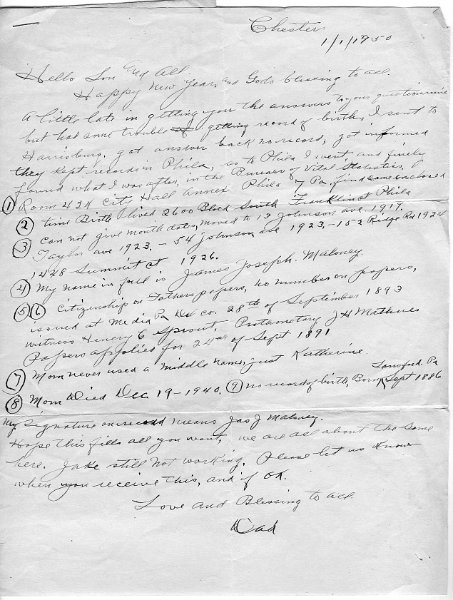 Chester
1/1/1950
Hello Son and All.
Happy New Year, and Gods blessing to all.
A little late in getting you the answers to your questionnaire
but had some trouble getting record of birth, I sent to
Harrisburg, got answer back no record, got informed
they kept records in Phila, so to Phila I went, and finely
found what I was after, in the Bureau of Vital Statistics,
① Room 434 City Hall Annex Phila 7 Pa, find same enclosed
② time Birth lived 2600 Block South Franklin st Phila
③ Can not give month date, moved to 19 Johnson ave 1917.
Taylor ave 1923, - 54 Johnson ave 1923, - 152 Ridge Rd 1924
1428 Summit st 1926.
④ My name in full is James Joseph Maloney
⑤ ⑥ Citizenship or Fathers papers, no number on papers,
issued at Media Pa Del co. 28th of September 1893
witness Henery C Sprout, Protametory J H Mathues
papers applied for 24th of Sept 1891
⑦ Mom never used a middle name, just Katherine.
⑧ Mom Died Dec 19-1940. ⑨ no record of birth, Born Sept 1886
My Signature on record means Jas J Maloney.
Hope this fills all you want, we are all about the same
here. Jake still not working. Please let us know
when you receive this, and if OK.
Love and Blessing to all
Dad